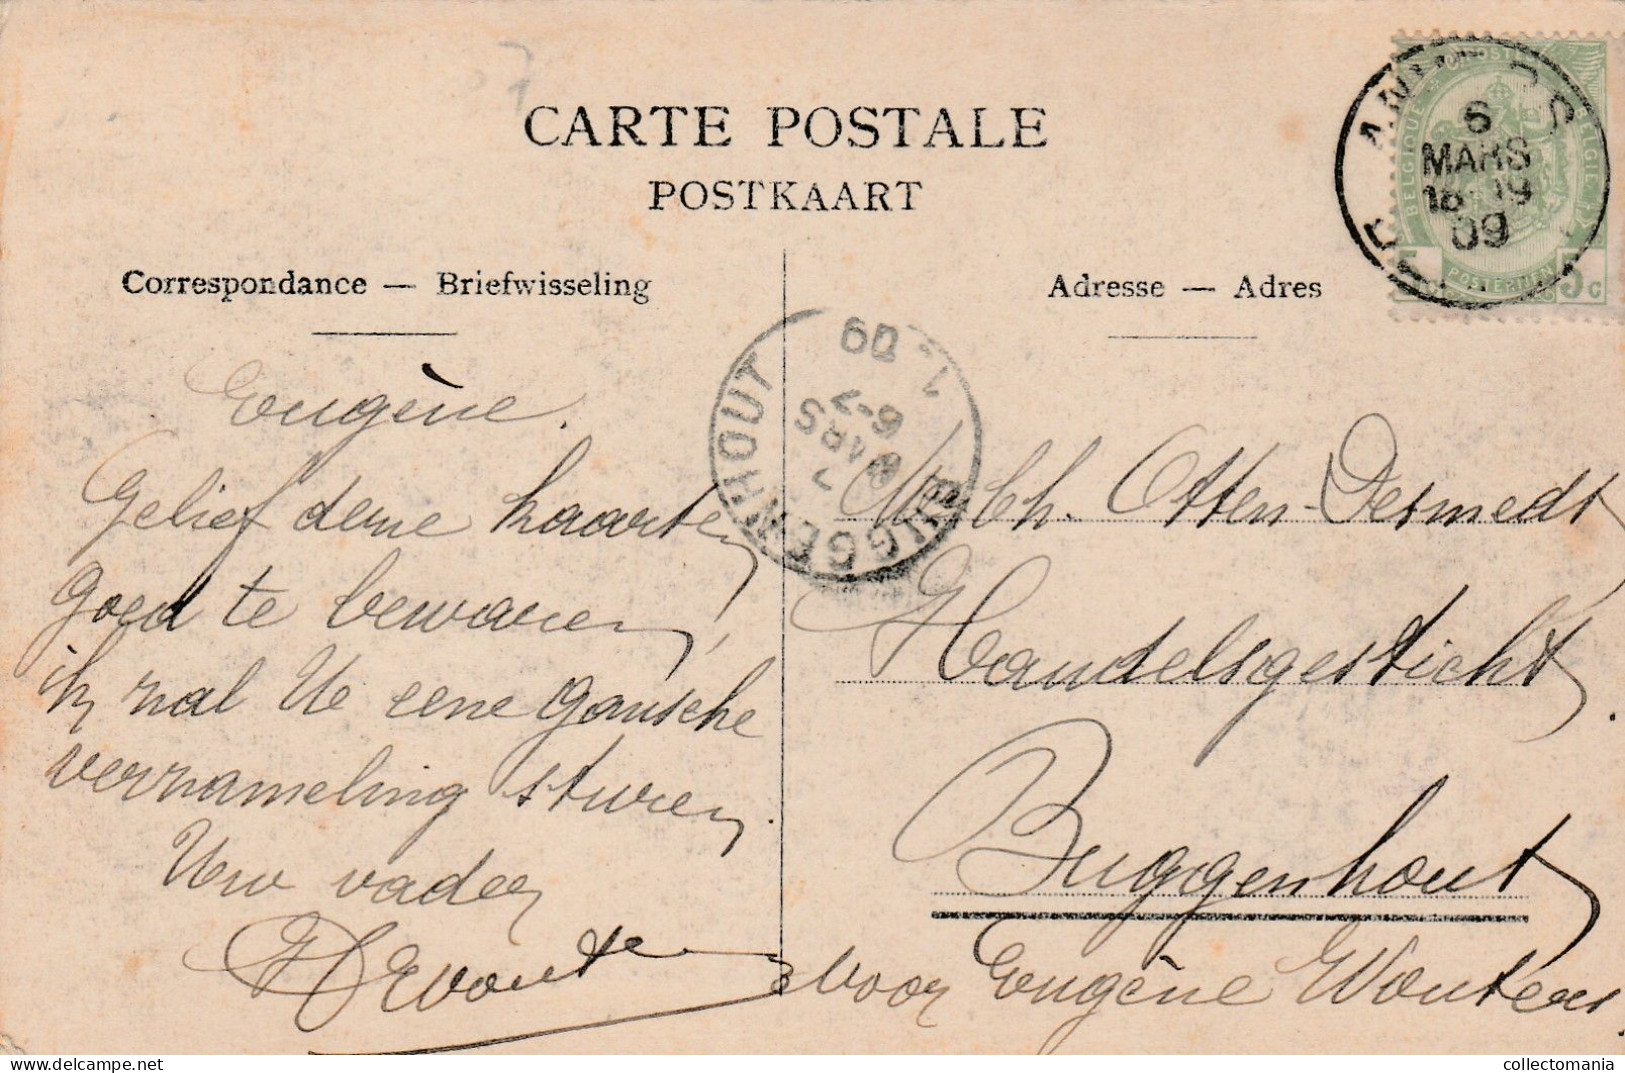 CARTE POSTALE
POSTKAART
Correspondance — Briefwisseling
Adresse — Adres
6
MARS
18-19
09
BELGIQUE
BELGIE
POSTERIJEN
5 c
BUGGENHOUT
7
MARS
6-7
09
Eugène.
Gelief deme kaarten
goed te bewaren,
ik zal Ue eene gansche
verzameling sturen.
Uw vader
voor Eugène Wouters
Ch. Otten-Desmedt
Handelsgesticht
Buggenhout
collectomania